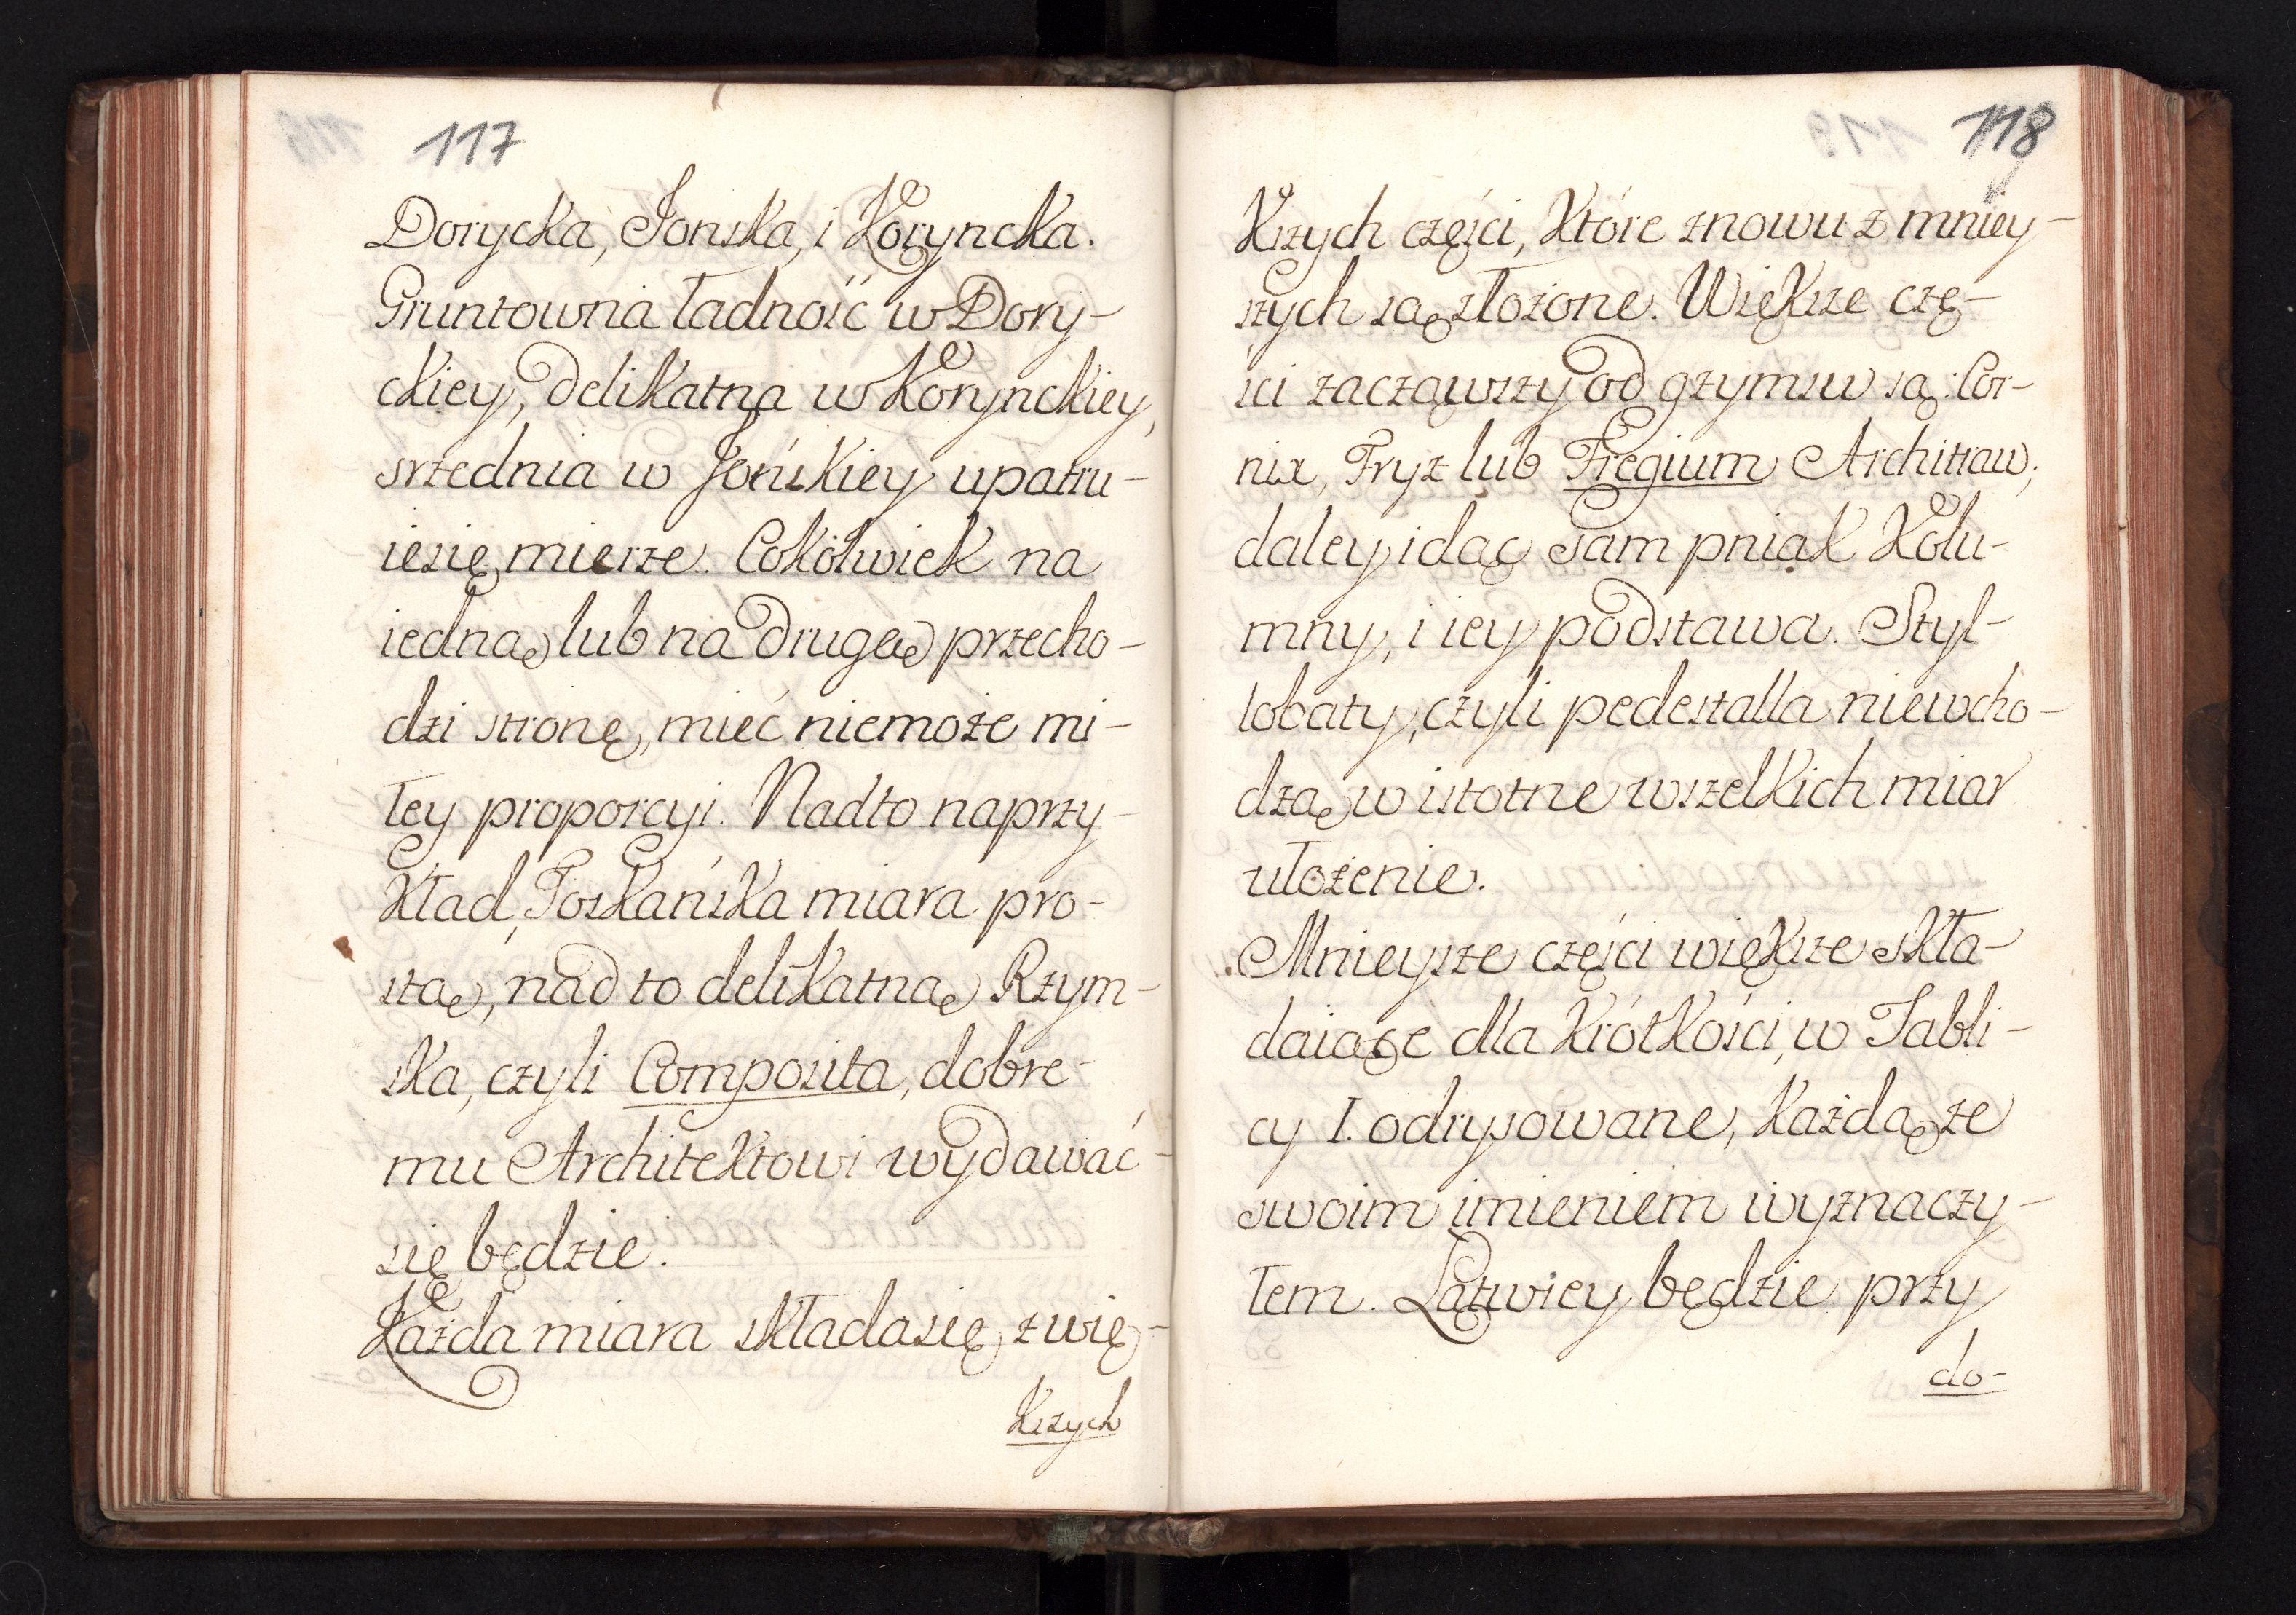 117
Dorycka, Jonska, i Koryncka.
Gruntowna ładność w Dory-
ckiey, Delikatna w Korynckiey,
srzednia w Jońskiey upatru-
iesię mierze. Cokolwiek na
iedną lub na Drugą przecho-
dzi stronę, mieć niemoże mi-
łey proporcyi. Nadto naprzy-
kład, Toskańska miara pro-
stą, nad to delikatną Rzym-
ska, czyli Composita, dobre-
mu Architektowi wydawać
się będzie.
Każda miara składasię z wię-
kszych
118
Kszych części, które znowu z mniey-
szych są złożone. Większe czę-
ści zacząwszy od gzymsu są: Cor-
nix, Fryz lub Fregium Architraw;
daley idąc sam pniak Kolu-
mny, i iey podstawa. Styl-
lobaty, czyli pedestalla niewcho-
dzą w istotne wszelkich miar
ułożenie.
Mnieysze części większe skła-
daiące dla krótkości, w Tabli-
cy I. odrysowane, każdą ze
swoim imieniem wyznaczy-
łem. Łatwiey będzie przy
do-